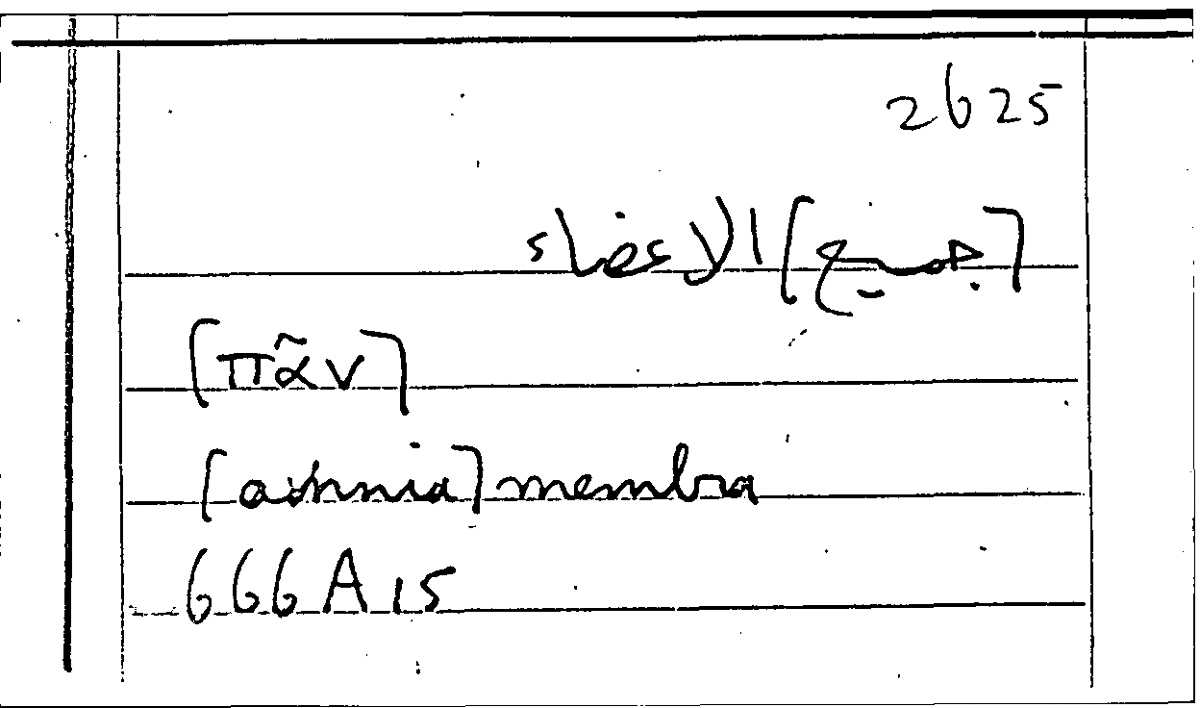 2625
[جميع] الاعضاء
[πᾶν]
[omnia] membra
666 A 15